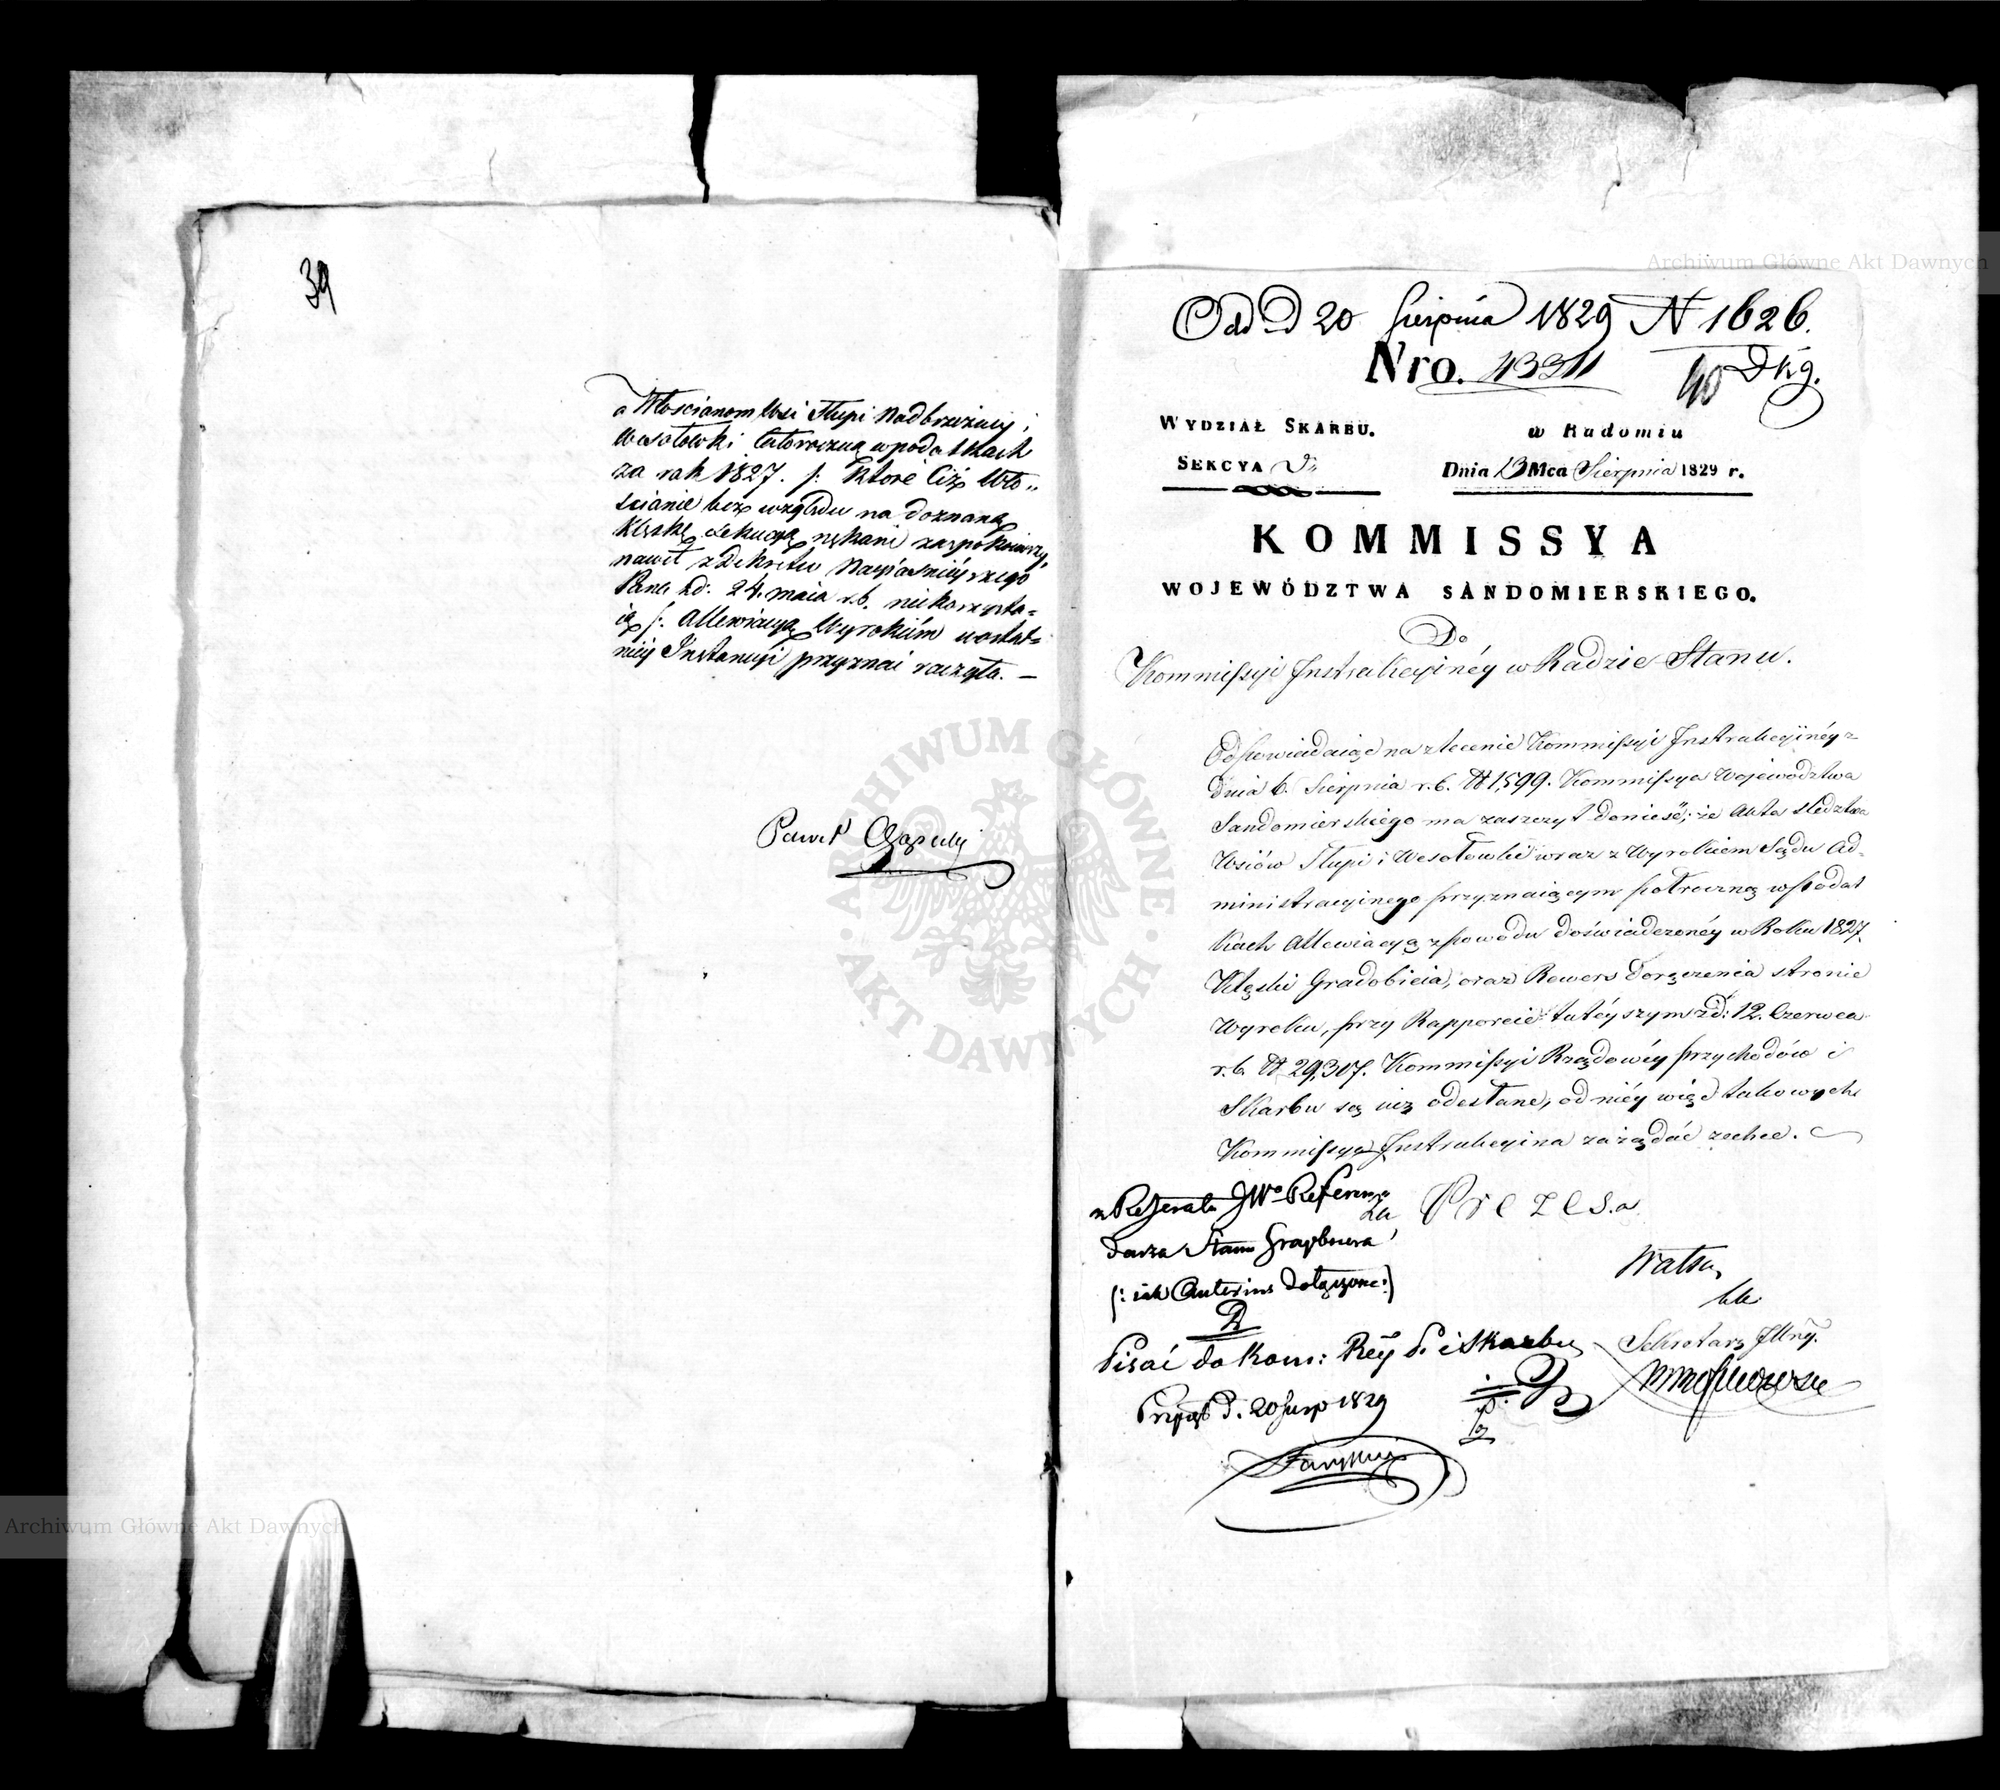 39
a Włoscianom Wsi Słupi Nadbrzeżney i
Wesołowki całoroczną w podatkach
za rok 1827. /: które Ciż Wło„
scianie bez względu na doznaną
Klęskę exekucyą nękani zaspokoiwszy,
nawet z Dekretu Nayiaśnieyszego
Pana z d: 24. maia r.b. niekorzysta=
ią /: Allewiacyą Wyrokiem w ostat=
niey Instancyi przyznać raczyła. —
Paweł
Odd D 20 Sierpnia 1829 N 1626.
Nro. 43311
40 Dkg.
WYDZIAŁ SKARBU.
w Radomiu
SEKCYA
Dnia 13 Mca Sierpnia 1829 r.
KOMMISSYA
WOJEWÓDZTWA SANDOMIERSKIEGO.
Do
Kommissyi Instrukcyinéy w Radzie Stanu.
Odpowiadaiąc na zlecenie Kommissyi Instrukcyinéy z
dnia 6. Sierpnia r.b. N 1,599. Kommissya Województwa
Sandomierskiego ma zaszczyt donieść, że Akta śledztwa
Wsiów Słupi i Wesołowki wraz z Wyrokiem Sądu Ad-
ministracyinego przyznaiącym półroczną w podat
kach Allewiacyą z powodu doświadczonéy w Roku 1827.
Klęski Gradobicia, oraz Rewers doręczenia stronie
Wyroku, przy Rapporcie tutéyszym z d: 12. Czerwca
r.b. N 29,307. Kommissyi Rządowéy przychodów i
Skarbu są już odesłane, od niéy więc takowych
Kommissya Instrukcyina zażądać zechce.
z Referatu JWo Referen
za Prezesa
darza Stanu Graybnera
(: iak Anterius dołączone:)
Pisać do Kom: Rey P. i Skarbu
Sekretarz Jlny.
Przyięto d. 20 Sierp 1829
Archiwum Główne Akt Dawnych
Archiwum Główne Akt Dawnych
ARCHIWUM GŁÓWNE
AKT DAWNYCH